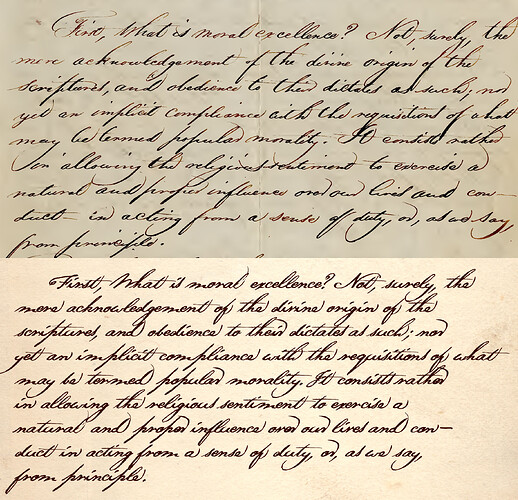 First, What is moral excellence? Not, surely, the
mere acknowledgement of the divine origin of the
scriptures, and obedience to their dictates as such; nor
yet an implicit compliance with the requisitions of what
may be termed popular morality. It consists rather
in allowing the religious sentiment to exercise a
natural and proper influence over our lives and con-
duct — in acting from a sense of duty, or, as we say,
from principle.
First, What is moral excellence? Not, surely, the
mere acknowledgement of the divine origin of the
scriptures, and obedience to their dictates as such; nor
yet an implicit compliance with the requisitions of what
may be termed popular morality. It consists rather
in allowing the religious sentiment to exercise a
natural and proper influence over our lives and con—
duct in acting from a sense of duty, or, as we say,
from principle.